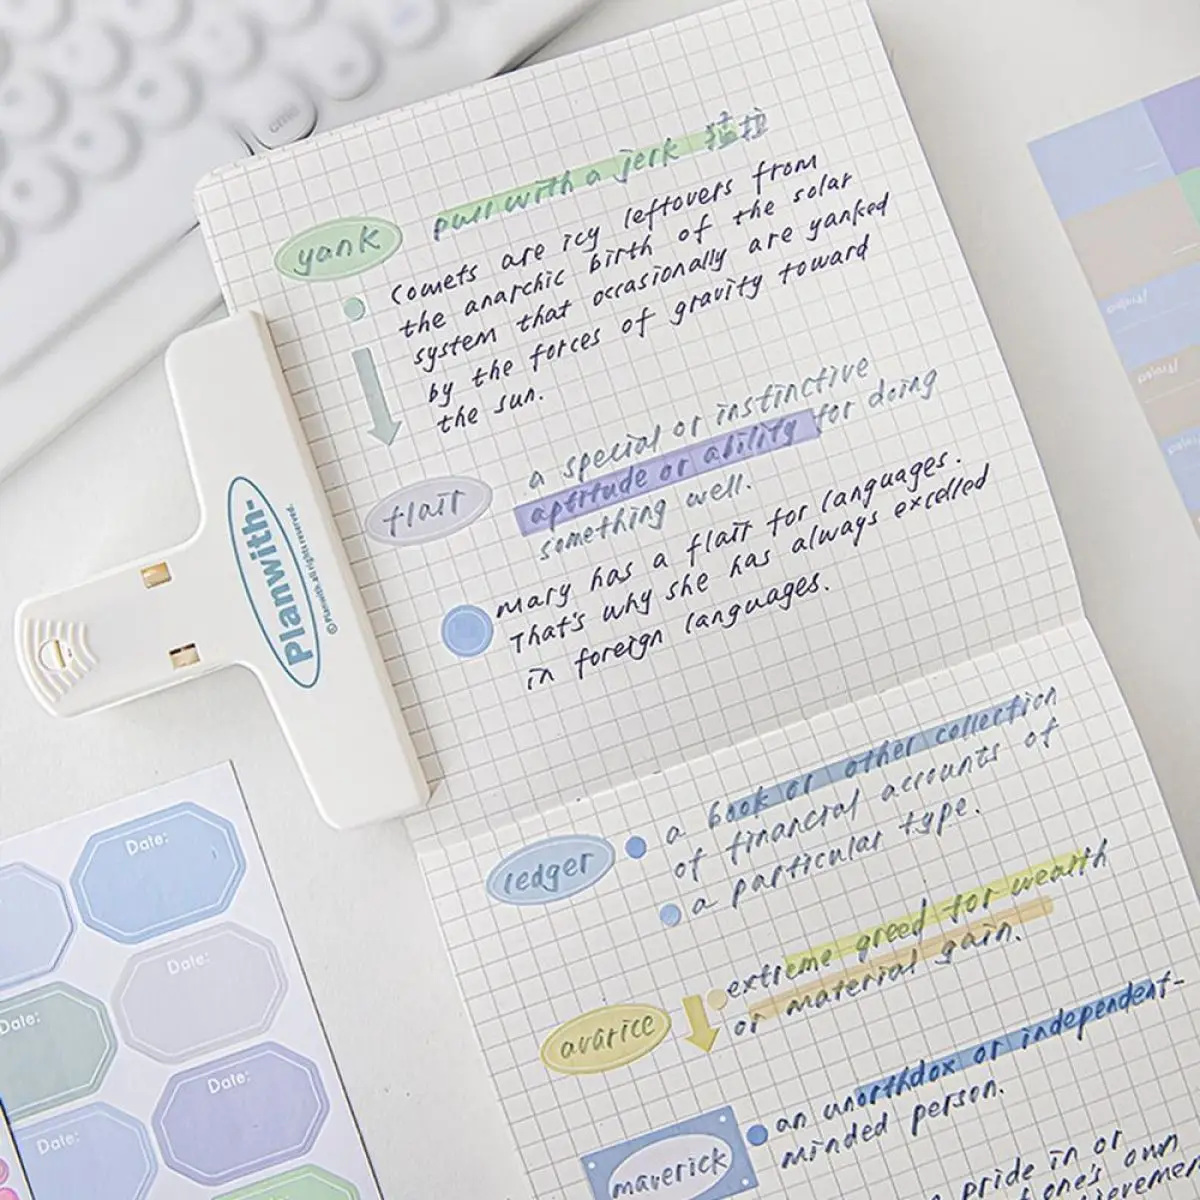 pull with a jerk 猛拉
yank
Comets are icy leftovers from
the anarchic birth of the solar
system that occasionally are yanked
by the forces of gravity toward
the sun.
a special or instinctive
flair
aptitude or ability for doing
something well.
Mary has a flair for languages.
That's why she has always excelled
in foreign languages.
Planwith-
© Planwith. all rights reserved.
ledger
a book or other collection
of financial accounts of
a particular type.
avarice
extreme greed for wealth
or material gain.
maverick
an unorthdox or independent-
minded person.
pride in or
one's own
cmd
Date:
Date:
Date:
Date:
Date:
Project
Project